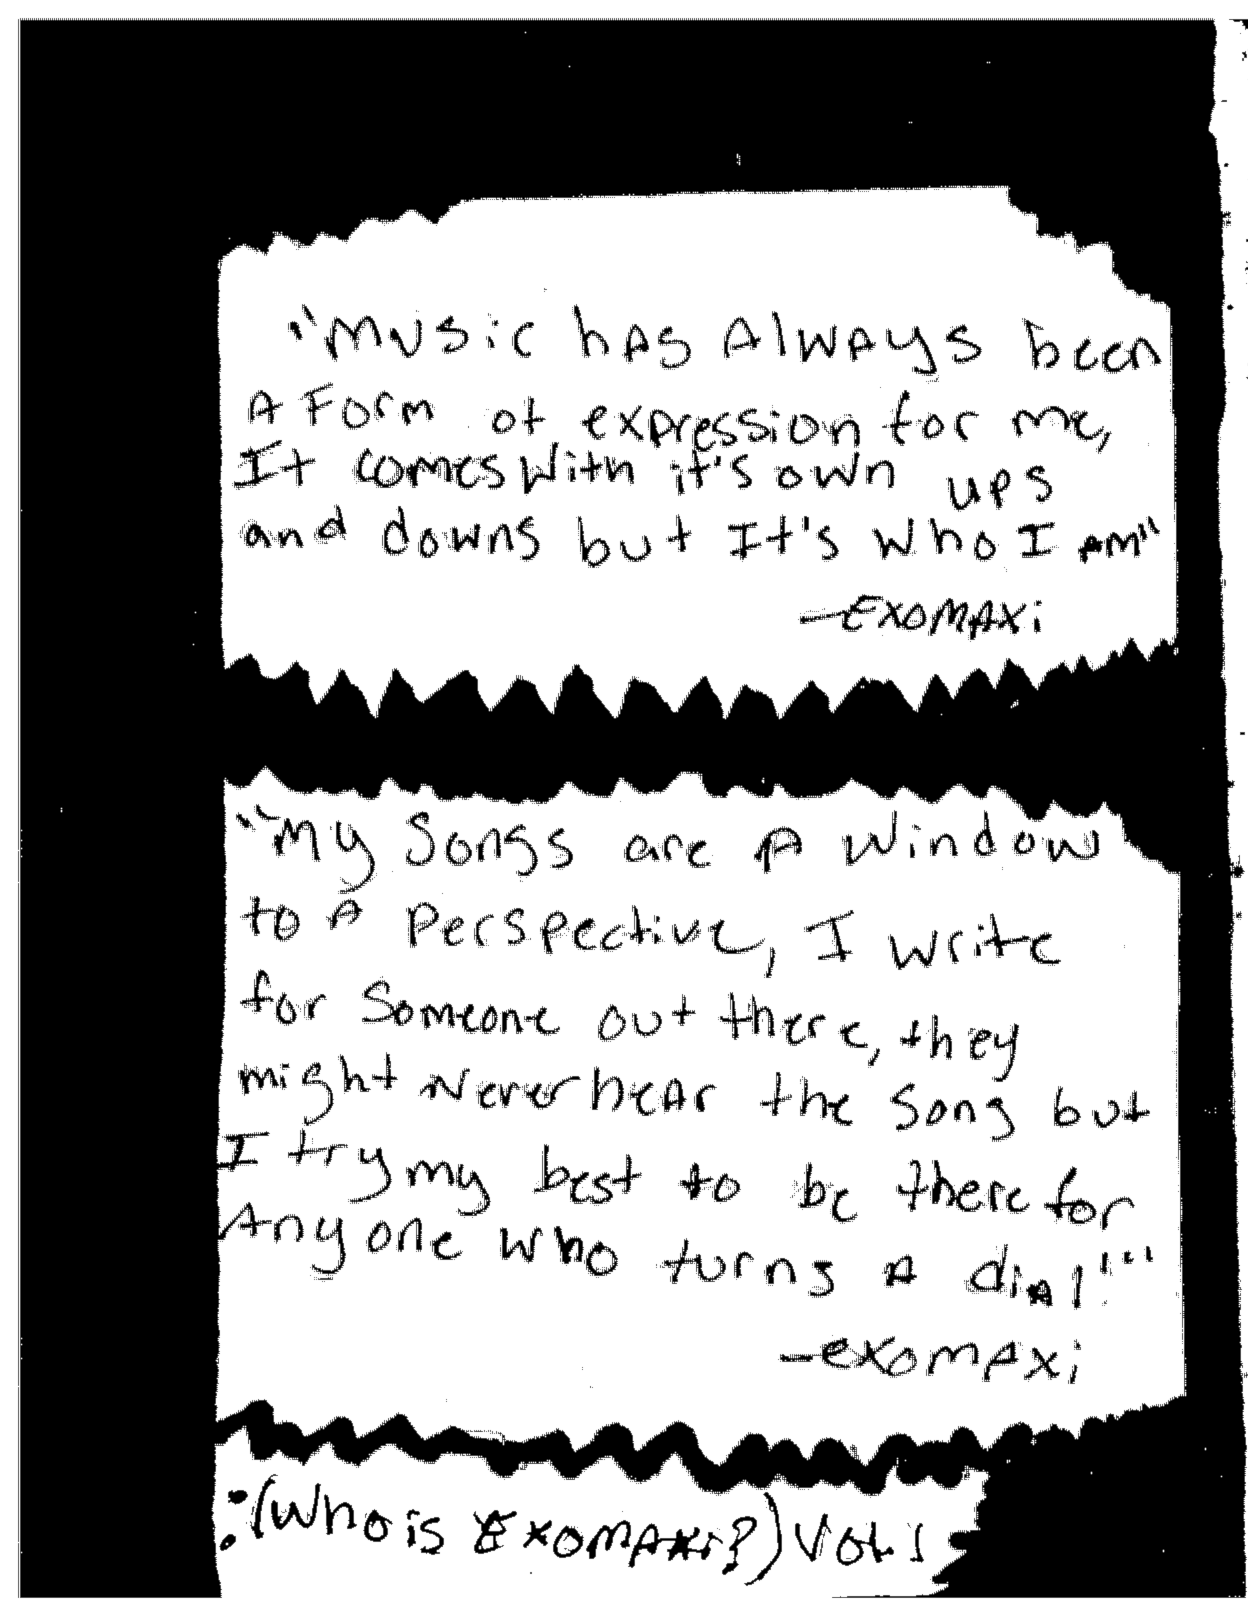 "Music hAS AlwAys been
A Form of expression for me,
It comes With it's own ups
and downs but It's Who I AM"
—EXOMAXi
"My Songs are A Window
to A Perspective, I write
for Someone out there, they
might Never heAr the Song but
I try my best to be there for
Anyone who turns A diAl!"
-exomAxi
:(Who is ExoMAxi?) Vol. 1